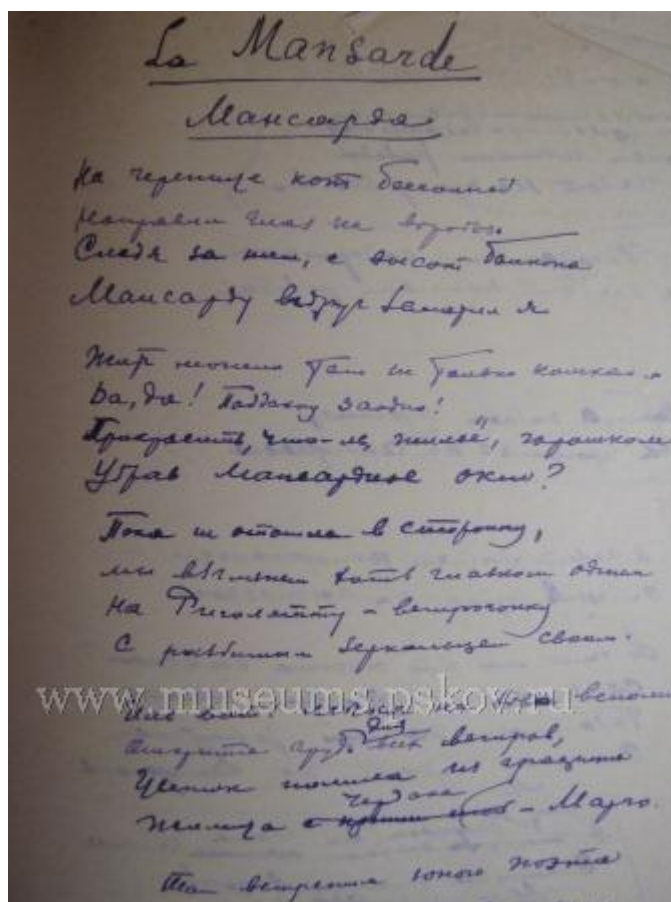 La Mansarde
Мансарда
На черепице кот бессонный
Направил глаз на воробья
Следя за ним, с высот балкона
Мансарду вдруг заметил я
там не только кошкам
Да, да! заодно!
Прикрасить, что-ль, жильё, горошком
Убрав мансардное окно?
Пока не отошла в сторонку,
мы взглянем хоть глазком одним
На Риголетту - ветрогонку
С разбитым зеркальцем своим.
www.museums.pskov.ru
Или вот!
грудь для всех ветров,
Цветок из
чердака
Жилица с - Марго.
юного поэта